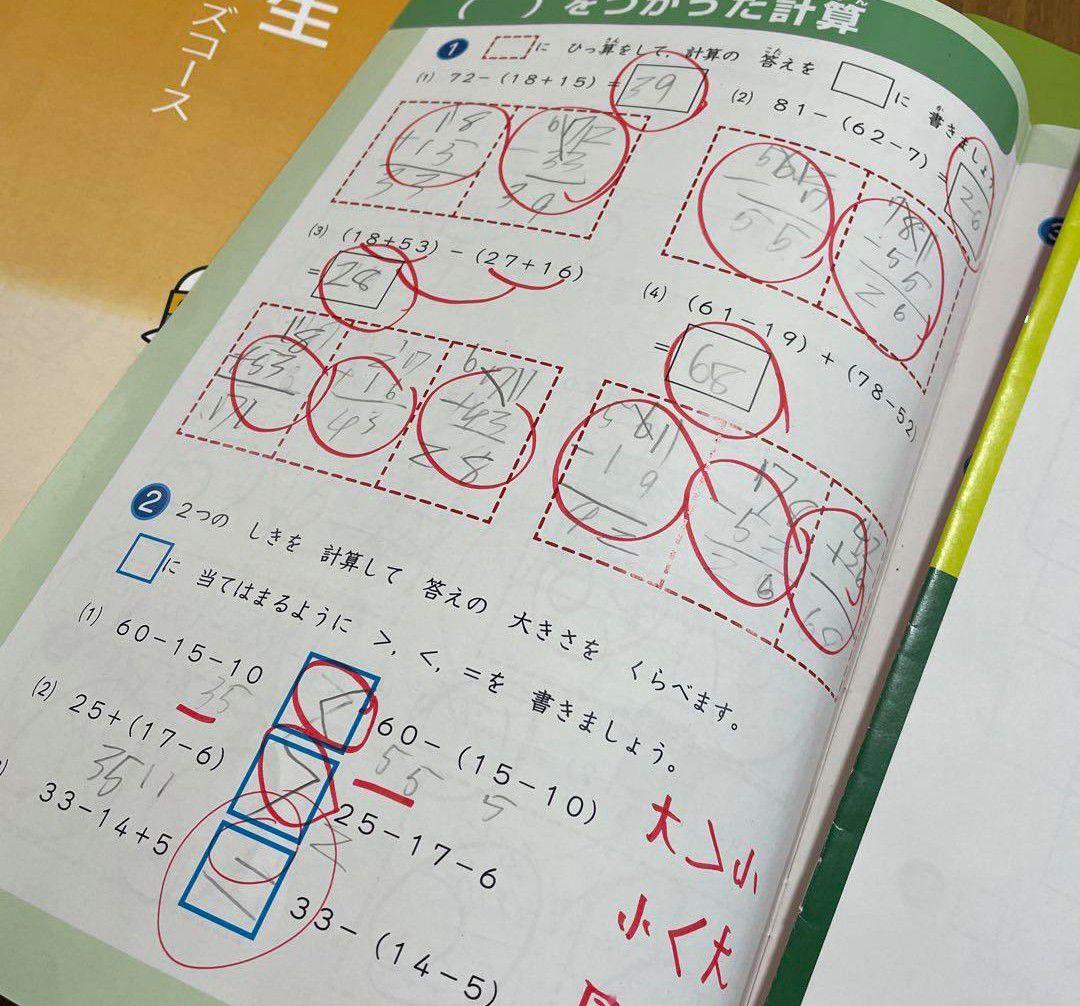 生
ズコース
( )をつかった計算
1 に ひっ算をして、計算の 答えを に 書きましょ
(1) 72-(18+15)=39
(2) 81-(62-7)=26
18
+15
33
- 33
39
55
- 55
26
(3) (18+53)-(27+16)
=28
(4) (61-19)+(78-52)
=68
+53
+16
43
-43
28
- 19
2 2つの しきを 計算して 答えの 大きさを くらべます。
に 当てはまるように >, <, =を 書きましょう。
(1) 60-15-10 < 60-(15-10)
35
55
5
(2) 25+(17-6) > 25-17-6
11
33-14+5 = 33-(14-5)
大>小
小<大